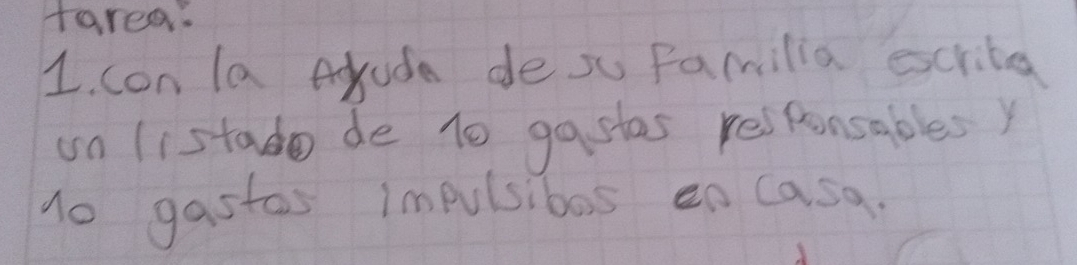 tarea:
1. con la Ayuda de su Familia escriba
un listado de 10 gastos responsables y
10 gastos impulsibos en casa.